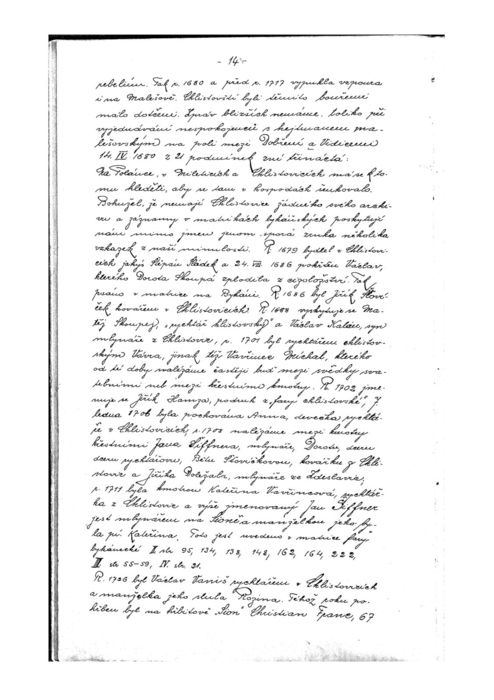 - 14 -
rebeliím. Tak r. 1680 a před r. 1717 vypukla vzpoura
i na Malešově. Chlistovští byli těmito bouřemi
málo dotčeni. Zpráv bližších nemáme. Toliko při
vyjednávání nespokojenců s hejtmanem ma-
lešovským na poli mezi Dobření a Vidicemi
14. IV 1680 z 21 podmínek zní třináctá:
Na Polánce, v Mileticích a Chlistovicích má se k to-
mu hleděti, aby se tam v hospodách šenkovalo.
Bohužel, že nemají Chlistovice žádného svého archi-
vu a záznamy v matrikách bykáňských poskytují
nám mimo jmen jenom sporá zrnka několika
vzkazek z naší minulosti. R 1679 bydlel v Chlistovi-
cích jakýs Štěpán a 24. VII 1686 pokřtěn Václav,
kterého Dorota Skoupá zplodila z cizoložství. Tak
psáno v matrice na Bykáni. R 1686 byl Jiřík Stoví-
ček kovářem v Chlistovicích. R 1688 vyskytuje se Ma-
těj Skoupej, "rychtář khlistovský" a Václav syn
mlynáře z Chlistovic, r. 1701 byl rychtářem chlistov-
ským Vávra, jinak též Vavřinec Michal, kterého
od té doby nalézáme častěji buď mezi svědky sva-
tebními neb mezi křestními kmotry. R 1702 jme-
nuje se Jiřík Hamza, podruh z "fary chlistovské". 7
ledna 1706 byla pochována Anna, děvečka rychtá-
ře v Chlistovicích, r. 1708 nalézáme mezi kmotry
křestními Jana Siffnera, mlynáře, Dorotu, dceru
dceru rychtářovu, Bětu Stovíčkovou, kovářku z Chli-
stovic a Jiříka Doležala, mlynáře ze Zdeslavic,
r. 1711 byla kmotrou Kateřina Vavřincová, rychtář-
ka z Chlistovic a výše jmenovaný Jan Siffner
jest mlynářem na a manželkou jeho by-
la pí. Kateřina. Toto jest uvedeno v matrice fary
bykáňské II str. 95, 134, 138, 148, 162, 164, 222,
III str 55-59, IV. str. 21.
R. 1726 byl Václav Vaniš rychtářem v Chlistovicích
a manželka jeho slula Rozina. Téhož roku po-
hřben byl na hřbitově "Sion" Christian Franc, 67